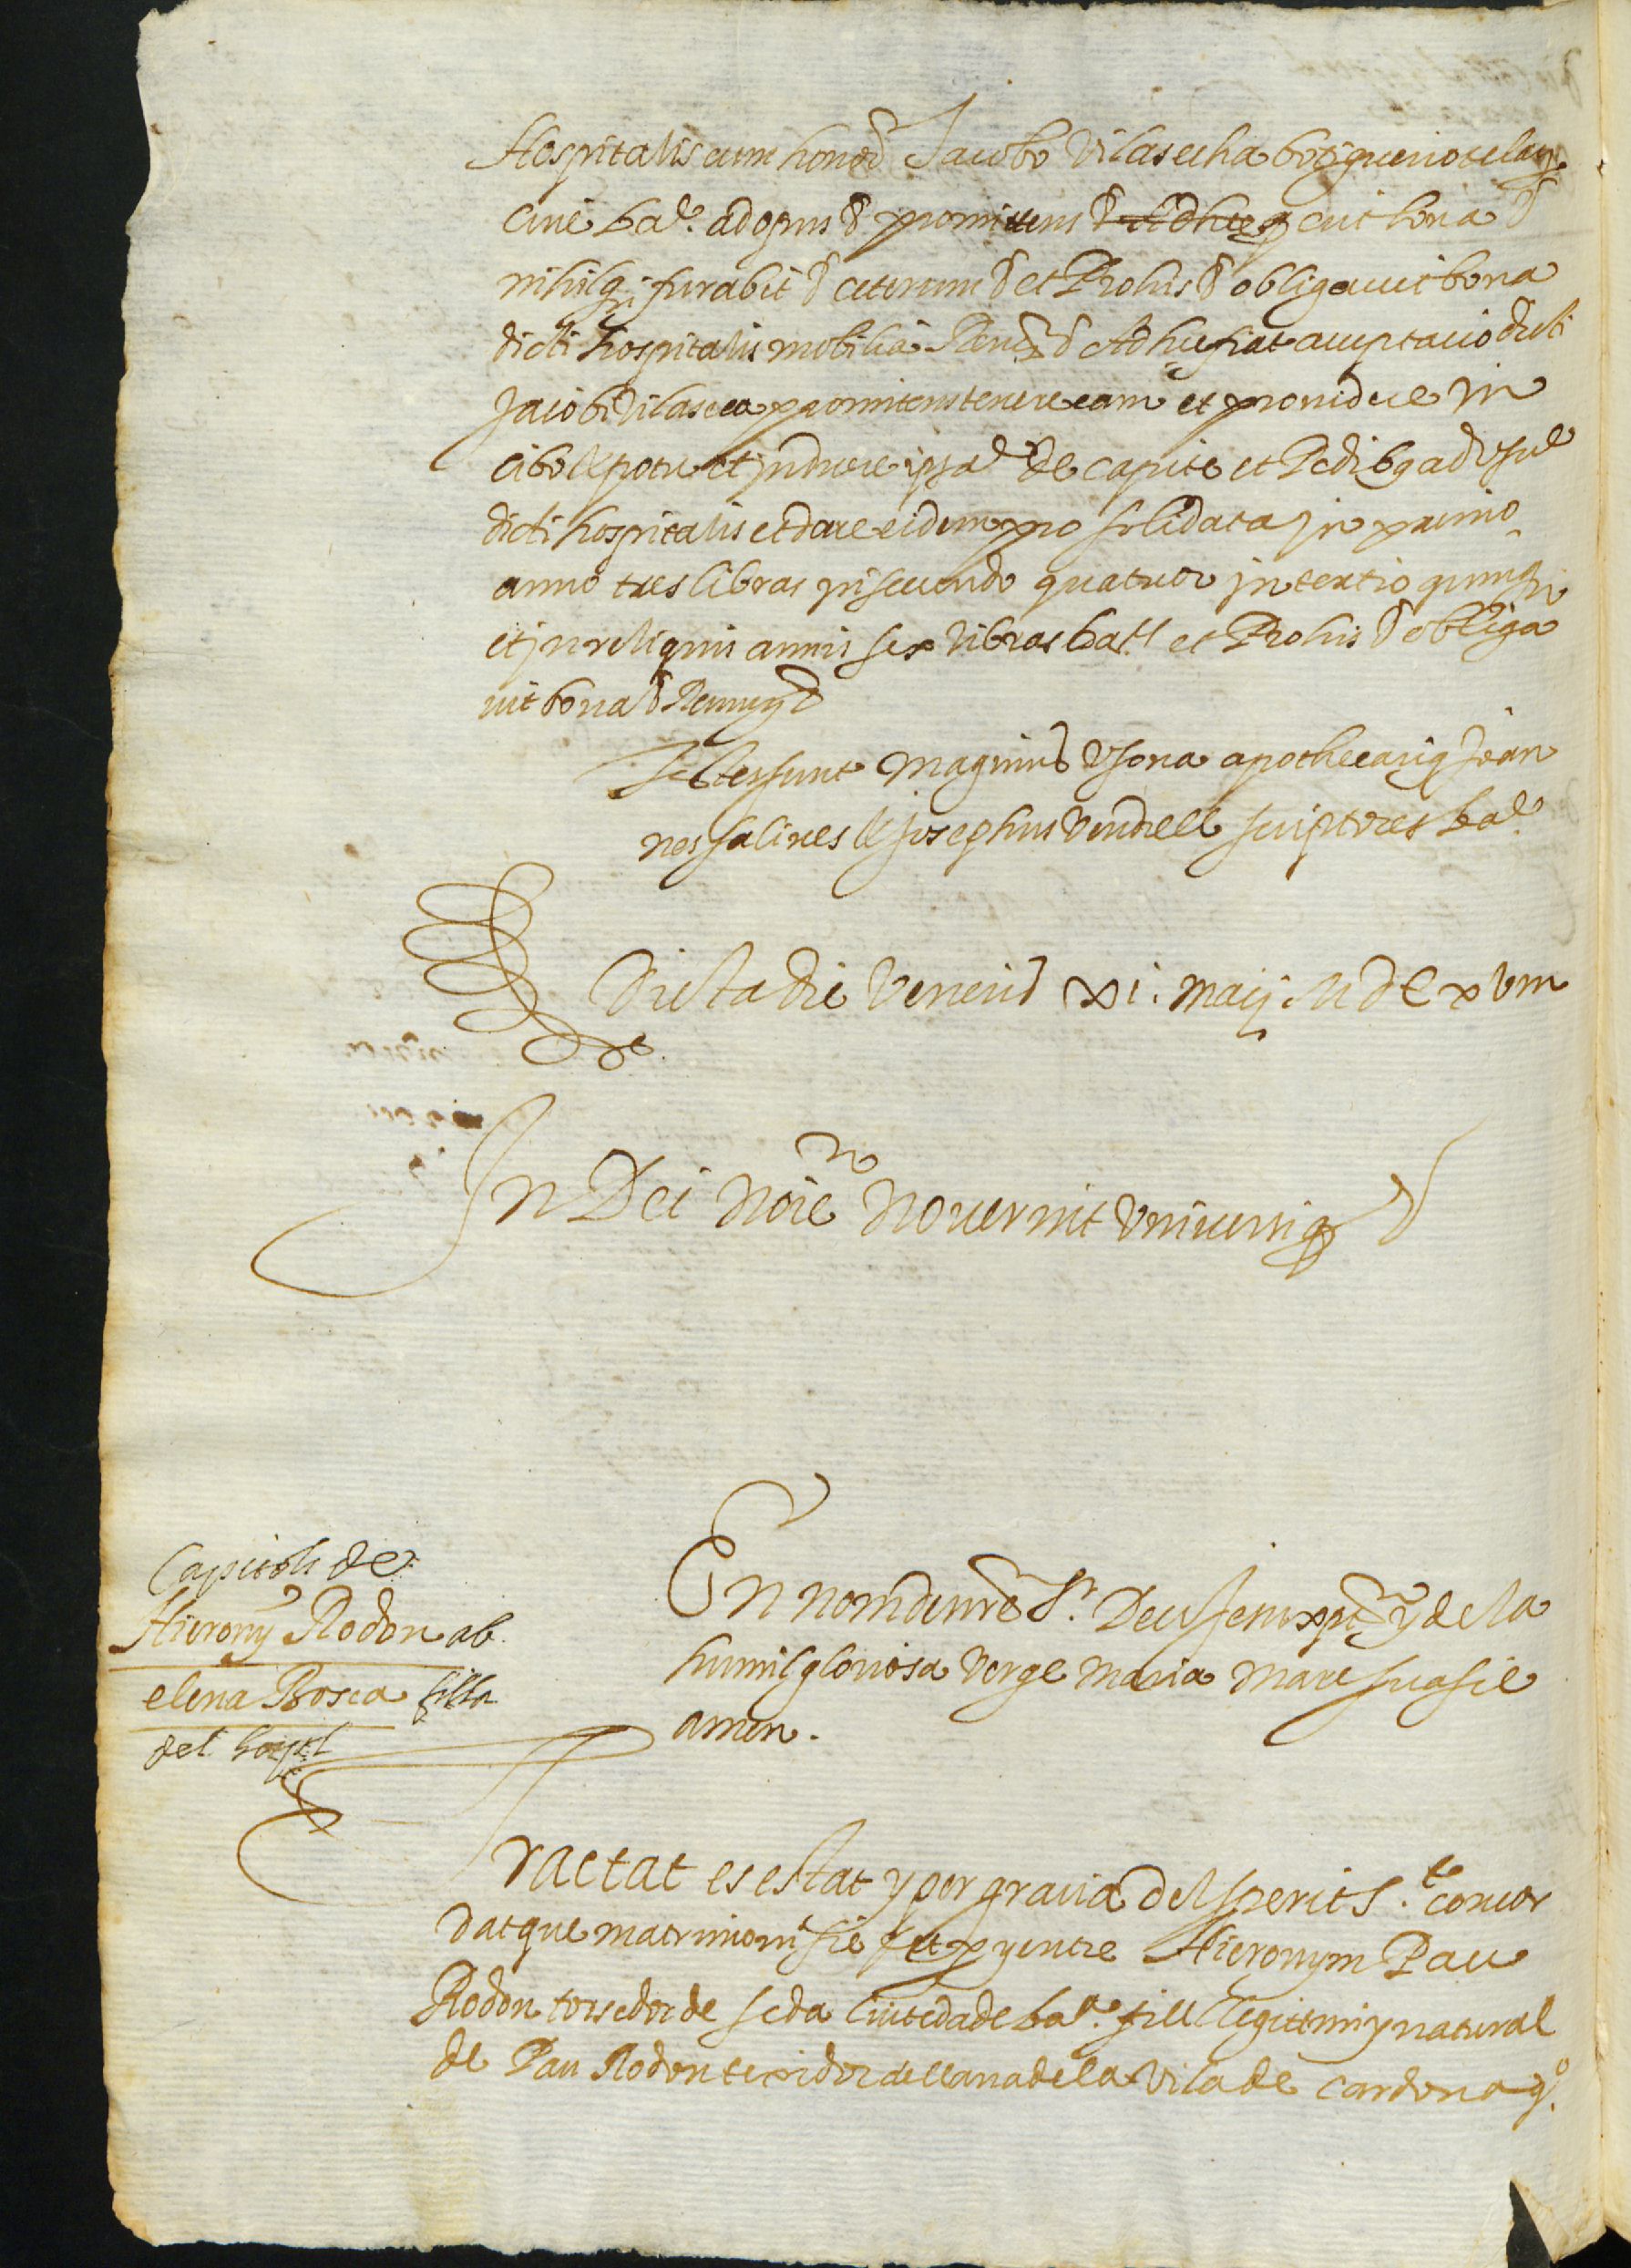 Hospitalis cum honod Jacobo Vilasecha botiguerio telarū
cive bar. ad opus & promittens & ad hec cuit bona &
nihilq furabit & ceterum & et Prohis & obligavit bona
dicti hospitalis mobilia Renus & Ad hec fiat acceptacio dicti
Jacobi Vilaseca promitens tenere eam et providere in
cibo & potu et induere ipsa de capite et Pedibq ad usū
dicti hospitalis et dare eidem pro solidata in primo
anno tres libras in secundo quatuor in tertio quinq
et in reliquis annis sex libras bar. et Prohis & obliga
vit bona & Renuns &
Testes sunt Maginus Usona apothecariq Joan
nes salines & Josephus Vendrell scriptores bar.
Dicta die Veneris xi. maij. MdCxviii
In Dei Noīe Noverint Universiq &
Capitols de
Hierony Rodon ab
elena Bosca filla
del hospl
En nom de nre Sr. Deu Jesu xpt y de la
humil gloriosa verge Maria Mare sua sie
amen.
Tractat es estat y per gracia del sperit St. concor
dat que matrimoni sie fet per y entre Hieronym Pau
Rodon torsedor de seda Ciutedà de bar. fill llegittim y natural
de Pau Rodon texidor de llana de la vila de Cardona qº.